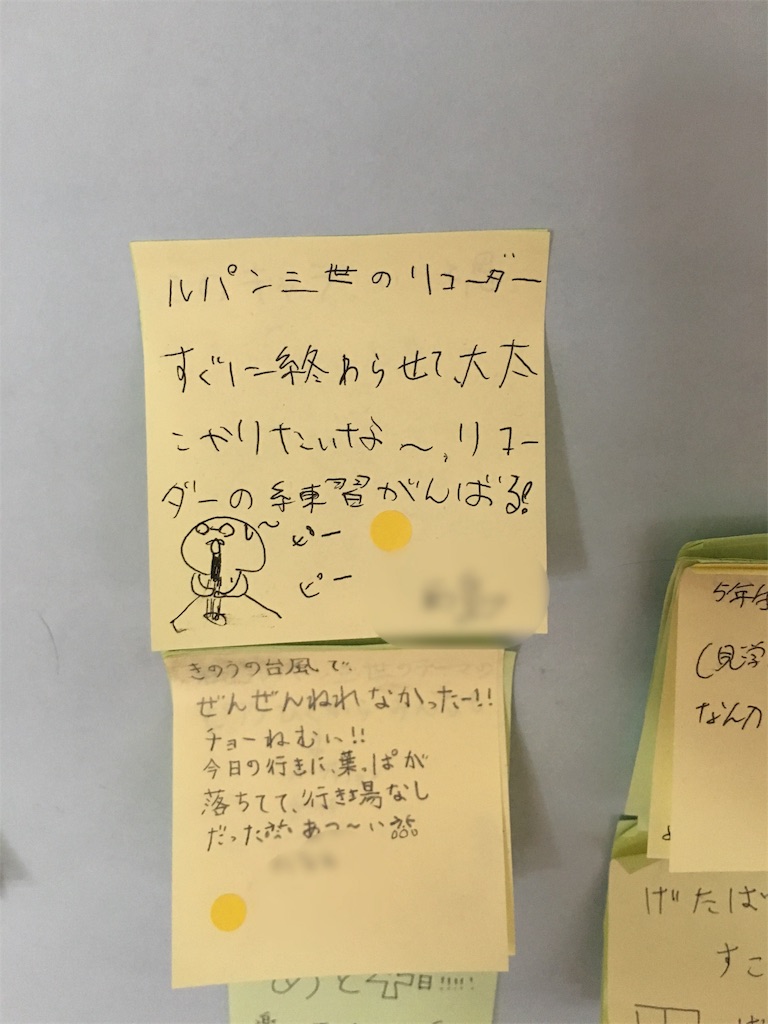 ルパン三世のリコーダー
すぐに終わらせて、大太
こやりたいな〜、リコー
ダーの練習がんばる!
ピー
ピー
きのうの台風で、
ぜんぜんねれなかったー!!
チョーねむい!!
今日の行きに、葉っぱが
落ちてて、行き場なし
だった あつ〜い
5年生
(見学
なん
げたば
すこ